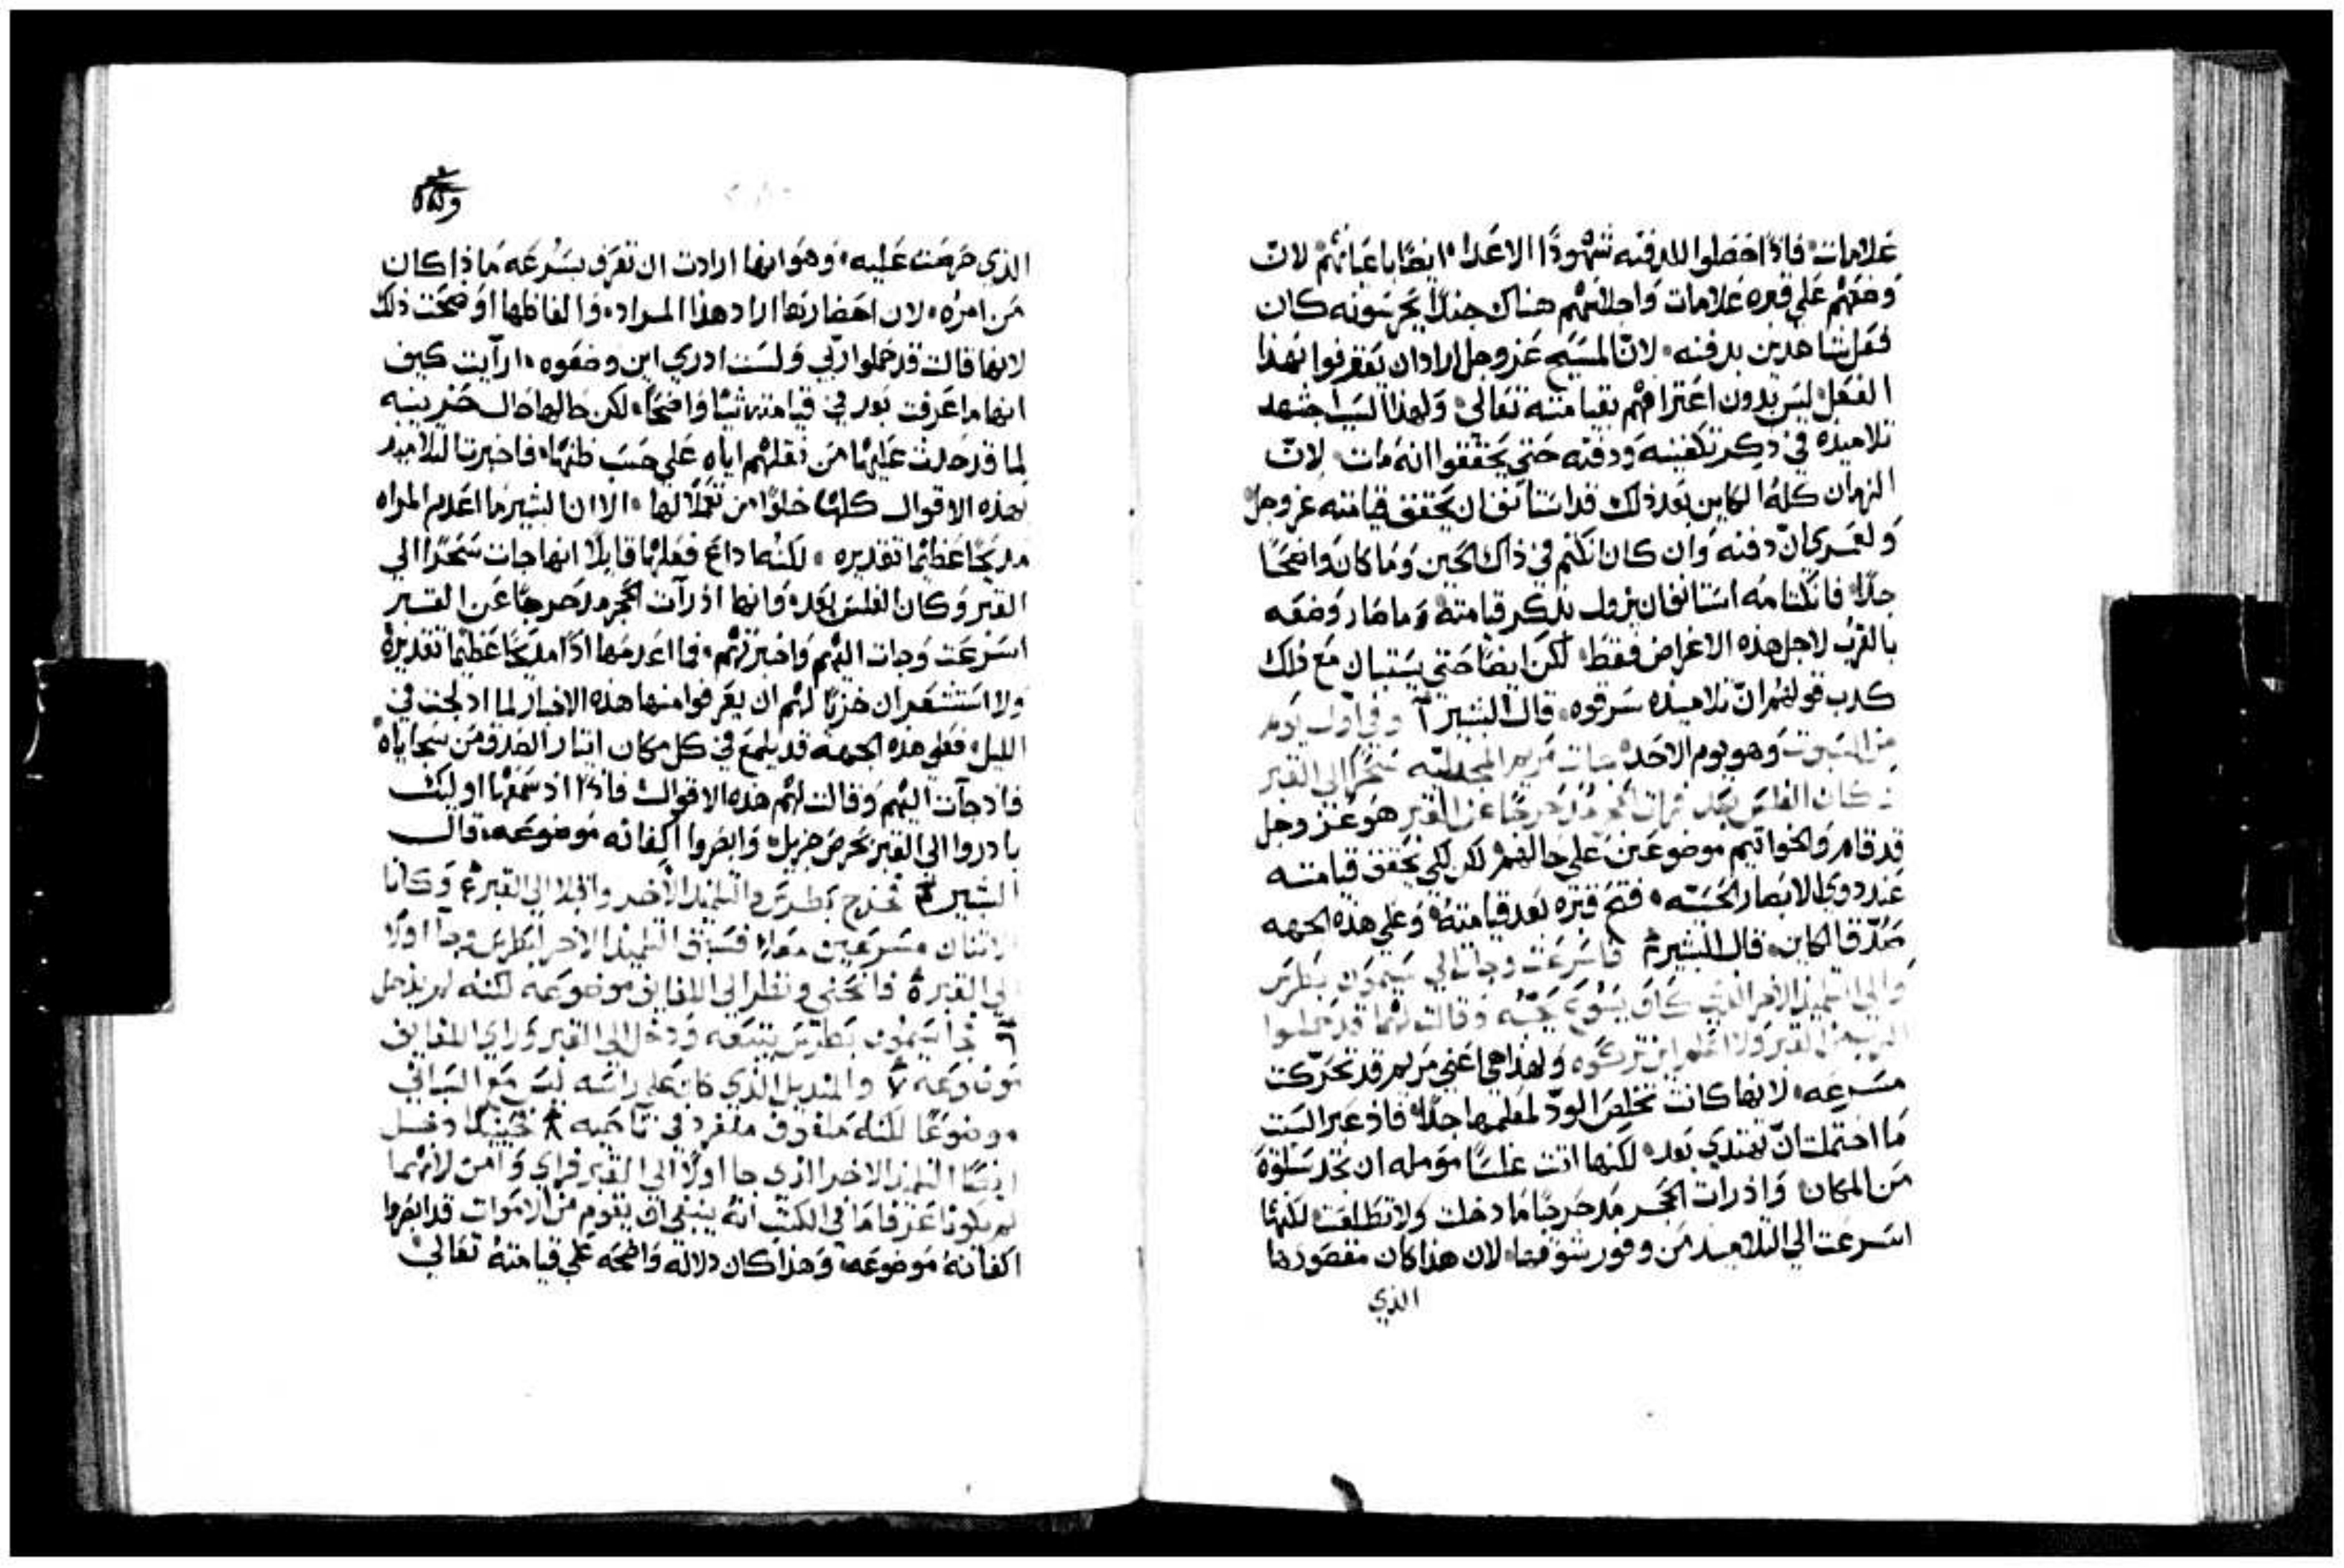 علامات، فاذًا حصلوا لدفنه شهودًا الاعدا، ايضًا باعيانهم، لان
وضعهم على قبره علامات واجلاسهم هناك جندًا يحرسونه كان
فعل شاهدين بدفنه، لانّ المسيح عز وجل اراد ان تعترفوا بهذا
الفعل، ليس بدون اعترافهم بقيامته تعالى، ولهذا السبب اجتهد
تلاميذه في ذكر تكفينه ودفنه حتى يحققوا انه مات، لانّ
الزمان كله الكاين بعد ذلك قد استانف ان يحقق قيامته عز وجل
ولعمري انّ دفنه وان كان انكتم في ذاك الحين وما كان واضحًا
جدًا، فانكتامه استانف ان يزول بذكر قيامته، وما صار وضعه
بالقرب لاجل هذه الاغراض فقط، لكن ايضًا حتى يستبان مع ذلك
كدب قولهم انّ تلاميذه سرقوه، قال البشير آ وفي اول يوم
من السبوت وهو يوم الاحد جات مريم المجدلية سَحَرًا الى القبر
وكان الغلس بعد فرات الحجر مدحرجًا عن القبر هو عز وجل
قد قام والخواتيم موضوعين على حالهم، لكن لكي يحقق قيامته
عند دوي الابصار الحسيه، فتح قبره بعد قيامته، وعلى هذه الجهه
صدّق الكاين، قال البشير فاسرعت وجات الي سيمون بطرس
والى التلميذ الاخر الذي كان يسوع يحبّه وقالت لهما قد حملوا
الرب من القبر ولا اعلم اين تركوه ولهذا هي اعني مريم قد تحرّكت
مسرعه، لانها كانت تخلص الودّ لمعلمها جدًا، فاذ عبر السبت
ما احتملت انّ تهتدي بعد، لكنها اتت غلسًا مومله ان تجد سلوة
من المكان، واذ رات الحجر مدحرجًا ما دخلت ولا تطلعت لكنها
اسرعت الى التلاميد من وفور شوقها، لان هذا كان مقصودها
الذي
الذي حرصت عليه، وهو انها ارادت ان تعرف بسرعه ما ذا كان
من امره، لان احضارتها اراد هذا المراد، والفاظها اوضحت ذلك
لانها قالت قد حملوا ربي ولست ادري اين وضعوه، ارآيت كيف
انها ما عرفت بعد في قيامته شيًا واضحًا، لكن حالها حال حزينه
لما قد حدث عليها من نقلهم اياه على حسب ظنها، فاخبرت التلاميد
بهذه الاقوال كلها خلوًا من تعملًا لها، الا ان البشير ما اعدم المراه
مديحًا عظيمًا تقديره، لكنه اداع فعلها قايلًا انها جات سَحَرًا الي
القبر وكان الغلس بعد، وانها اذ رآت الحجر مدحرجًا عن القبر
اسرعت وجات اليهم واخبرتهم، فما اعدمها اذًا مديحًا عظيمًا تقديره
ولا استشعر ان خزيًا لهم ان يعرفوا منها هذه الاخبار لما ادلجت في
الليل، فعلى هذه الجهه قد يلمع في كل مكان ايثار الصدق من سجاياه
فاذ جآت اليهم وقالت لهم هذه الاقوال، فاذ اذ سمعها اوليك
بادروا الى القبر بحرص جزيل، وابصروا اكفانه موضوعه، قال
البشير فخرج بطرس والتلميذ الاخر واقبلا الى القبر وكانا
الاثنان مسرعين معا فسبق التلميذ الاخر لبطرس وجآ اولًا
الى القبر فانحنى ونظر الى اللفايف موضوعه لكنه لم يدخل
فجا سيمون بطرس يتبعه ودخل الى القبر وراي اللفايف
موضوعه والمنديل الذي كان على راسه ليس مع السباني
موضوعًا لكنه ملفوف منفرد في ناحيه فحينيذ دخل
ايضًا التلميذ الاخر الذي جا اولًا الى القبر فراي وآمن لانهما
لم يكونا عرفا ما في الكتب انه ينبغي ان يقوم من الاموات قد ابصروا
اكفانه موضوعه، وهذا كان دلاله واضحه على قيامته تعالى